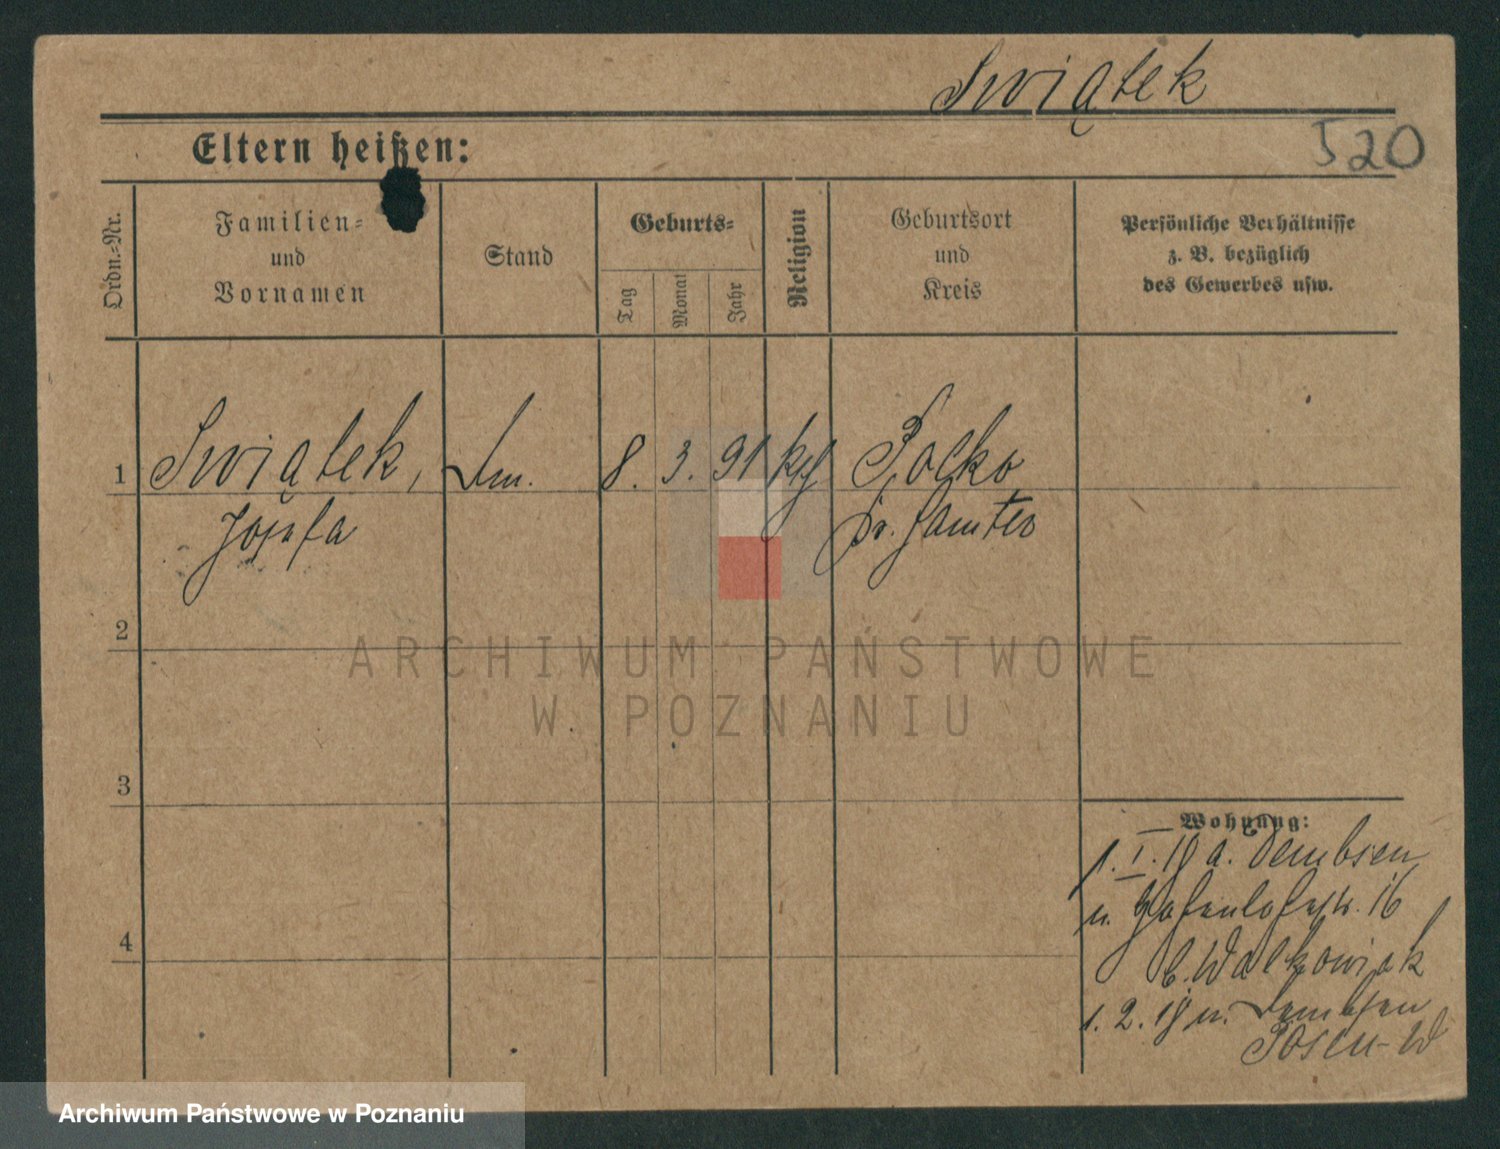 Swiątek
520
Eltern heißen:
Ordn.-Nr.
Familien-
und
Vornamen
Stand
Geburts-
Tag
Monat
Jahr
Religion
Geburtsort
und
Kreis
Persönliche Verhältnisse
z. B. bezüglich
des Gewerbes usw.
1 Swiątek, 8. 3. 91 kth Polko
Josefa Kr. Samter
2
ARCHIWUM PAŃSTWOWE
W POZNANIU
3
Wohnung:
1. I. 18 a. Dembsen
n. Hohenlohestr. 16
b. Walkowiak
4
1. 2. 18 n. Dembsen
Posen-W
Archiwum Państwowe w Poznaniu